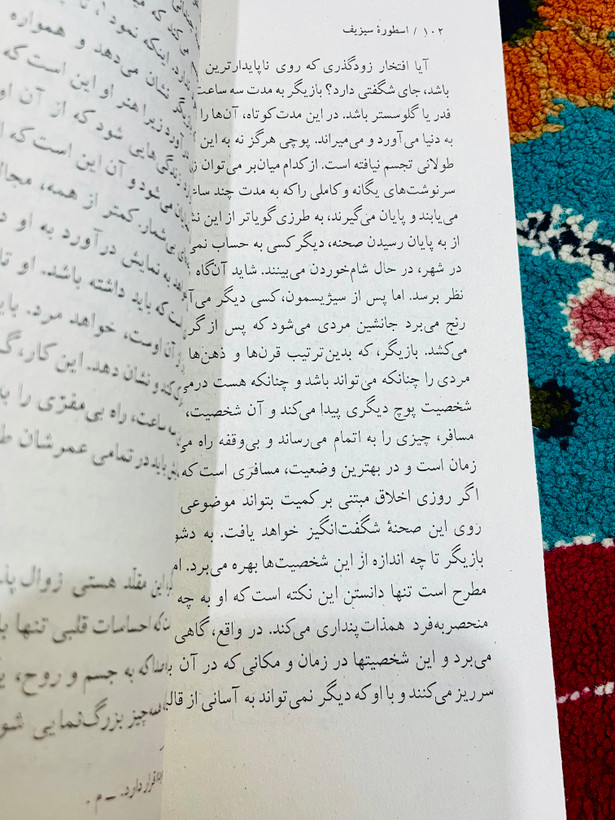 ۱۰۲ / اسطورهٔ سیزیف
آیا افتخار زودگذری که روی ناپایدارترین
باشد، جای شگفتی دارد؟ بازیگر به مدت سه ساعت
قدر یا گلوسستر باشد. در این مدت کوتاه، آن‌ها را
به دنیا می‌آورد و می‌میراند. پوچی هرگز نه به این
طولانی تجسم نیافته است. از کدام میان‌بر می‌توان
سرنوشت‌های یگانه و کاملی را که به مدت چند
می‌یابند و پایان می‌گیرند، به طرزی گویاتر از این
از به پایان رسیدن صحنه، دیگر کسی به حساب
در شهر، در حال شام‌خوردن می‌بینند. شاید آن‌گاه
نظر برسد. اما پس از سیژیسمون، کسی دیگر
رنج می‌برد جانشین مردی می‌شود که پس از
می‌کشد. بازیگر، که بدین‌ترتیب قرن‌ها و ذهن‌ها
مردی را چنانکه می‌تواند باشد و چنانکه هست
شخصیت پوچ دیگری پیدا می‌کند و آن شخصیت،
مسافر، چیزی را به اتمام می‌رساند و بی‌وقفه راه
زمان است و در بهترین وضعیت، مسافری است که
اگر روزی اخلاق مبتنی بر کمیت بتواند موضوعی
روی این صحنهٔ شگفت‌انگیز خواهد یافت. به
بازیگر تا چه اندازه از این شخصیت‌ها بهره می‌برد.
مطرح است تنها دانستن این نکته است که او به چه
منحصربه‌فرد همذات‌پنداری می‌کند. در واقع، گاهی
می‌برد و این شخصیتها در زمان و مکانی که در آن
سرریز می‌کنند و با او که دیگر نمی‌تواند به آسانی از
می‌کند که
دارد. اینکه نمود
نشان می‌دهد و همواره
زیرا هنر او این است که
زندگی‌هایی شود که از آن او
می‌شود و آن این است که
بی‌شمار، کمتر از همه،
به نمایش درآورد به او
است که باید داشته باشد. او
آن اوست، خواهد مرد.
کند و نشان دهد. این کار،
ساعت، راه بی‌مفرّی را
باید در تمامی عمرشان
این مقلّد هستی زوال
که احساسات قلبی تنها
که به جسم و روح،
همه‌چیز بزرگ‌نمایی
قرار دارد. ــ م.